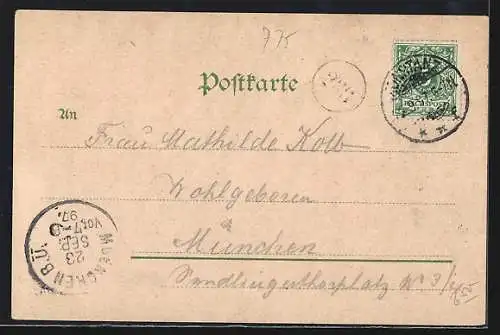 775
Postkarte
An
Frau Mathilde Kolb
Wohlgeboren
München
Sendlingerthorplatz No 3/
MUENCHEN B.U.
23
SEP.
VOR.7-8
97.